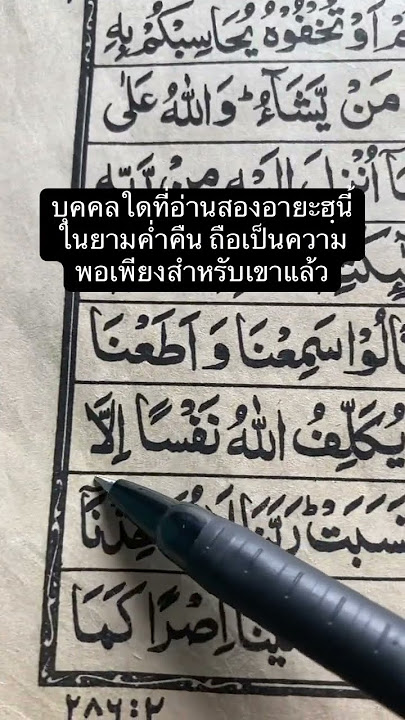 اَوْ تُخْفُوْهُ يُحَاسِبْكُمْ بِهِ
مَنْ يَّشَآءُ ؕ وَاللّٰهُ عَلٰى
اُنْزِلَ اِلَيْهِ مِنْ رَّبِّهٖ
บุคคลใดที่อ่านสองอายะฮฺนี้
ในยามค่ำคืน ถือเป็นความ
พอเพียงสำหรับเขาแล้ว
سَمِعْنَا وَ اَطَعْنَا
يُكَلِّفُ اللّٰهُ نَفْسًا اِلَّا
رَبَّنَا
اِصْرًا كَمَا
٢٨٦:٢